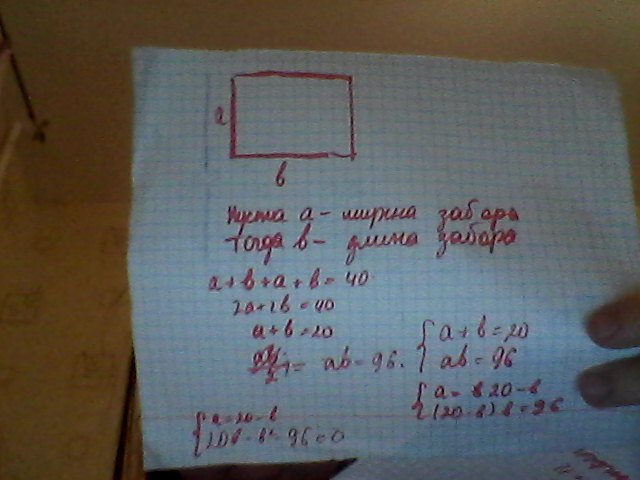 a
в
Пуста а - ширина забора
Тогда в - длина забора
а + в + а + в = 40
2а + 2в = 40
а + в = 20
ав = 96.
{ а + в = 20
ав = 96
{ а = 20 - в
(20 - в) в = 96
{ а = 20 - в
20в - в² - 96 = 0